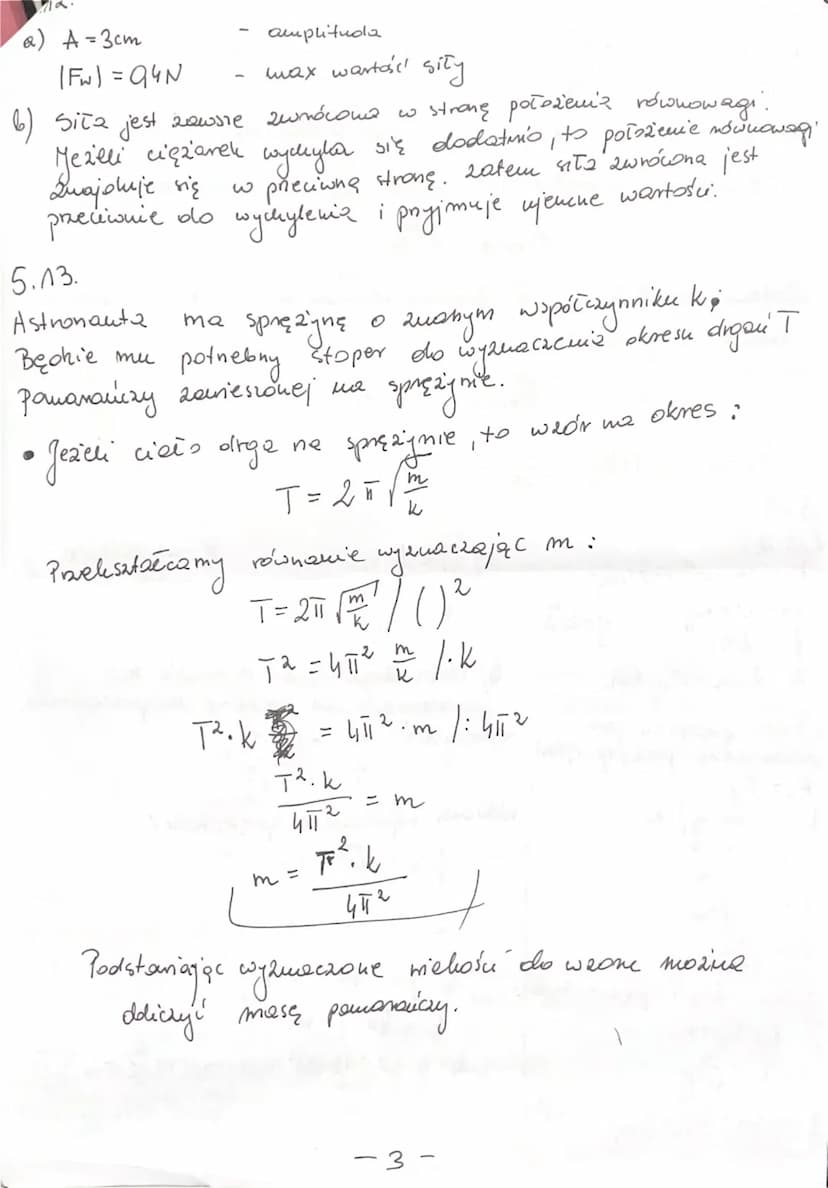 a) A = 3cm - amplituda
|Fw| = 0,4N - max wartość siły
b) Siła jest zawsze zwrócona w stronę położenia równowagi.
Jeżeli ciężarek wychyla się dodatnio, to położenie równowagi
znajduje się w przeciwną stronę. Zatem siła zwrócona jest
przeciwnie do wychylenia i przyjmuje ujemne wartości.
5.13.
Astronauta ma sprężynę o znanym współczynniku k;
Będzie mu potrzebny stoper do wyznaczenia okresu drgań T
pomarańczy zawieszonej na sprężynie.
• Jeżeli ciało drga na sprężynie, to wzór na okres :
T = 2π√(m/k)
Przekształcamy równanie wyznaczając m :
T = 2π√(m/k) / ( )²
T² = 4π² m/k / · k
T² · k = 4π² · m / : 4π²
T² · k / 4π² = m
m = T² · k / 4π²
Podstawiając wyznaczone wielkości do wzoru można
obliczyć masę pomarańczy.
- 3 -